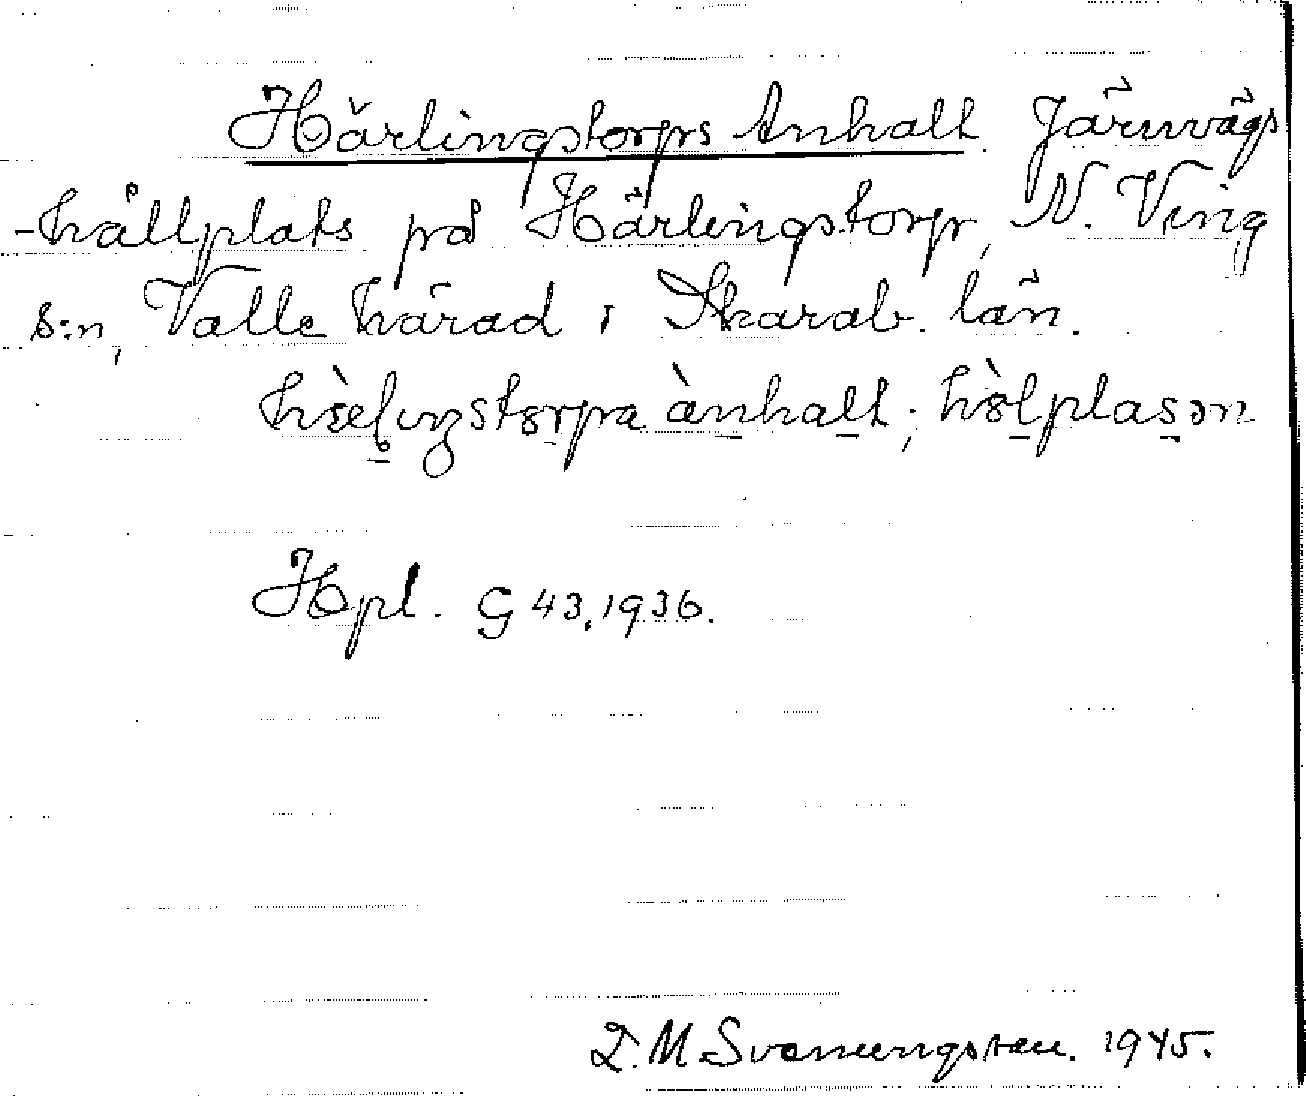 Härlingstorps Anhalt. Järnvägs
-hållplats på Härlingstorp, N. Ving
s:n, Valle härad i Skarab. län.
ànhalt;
Hpl. G 43, 1936.
D. M. Svenungsson. 1945.